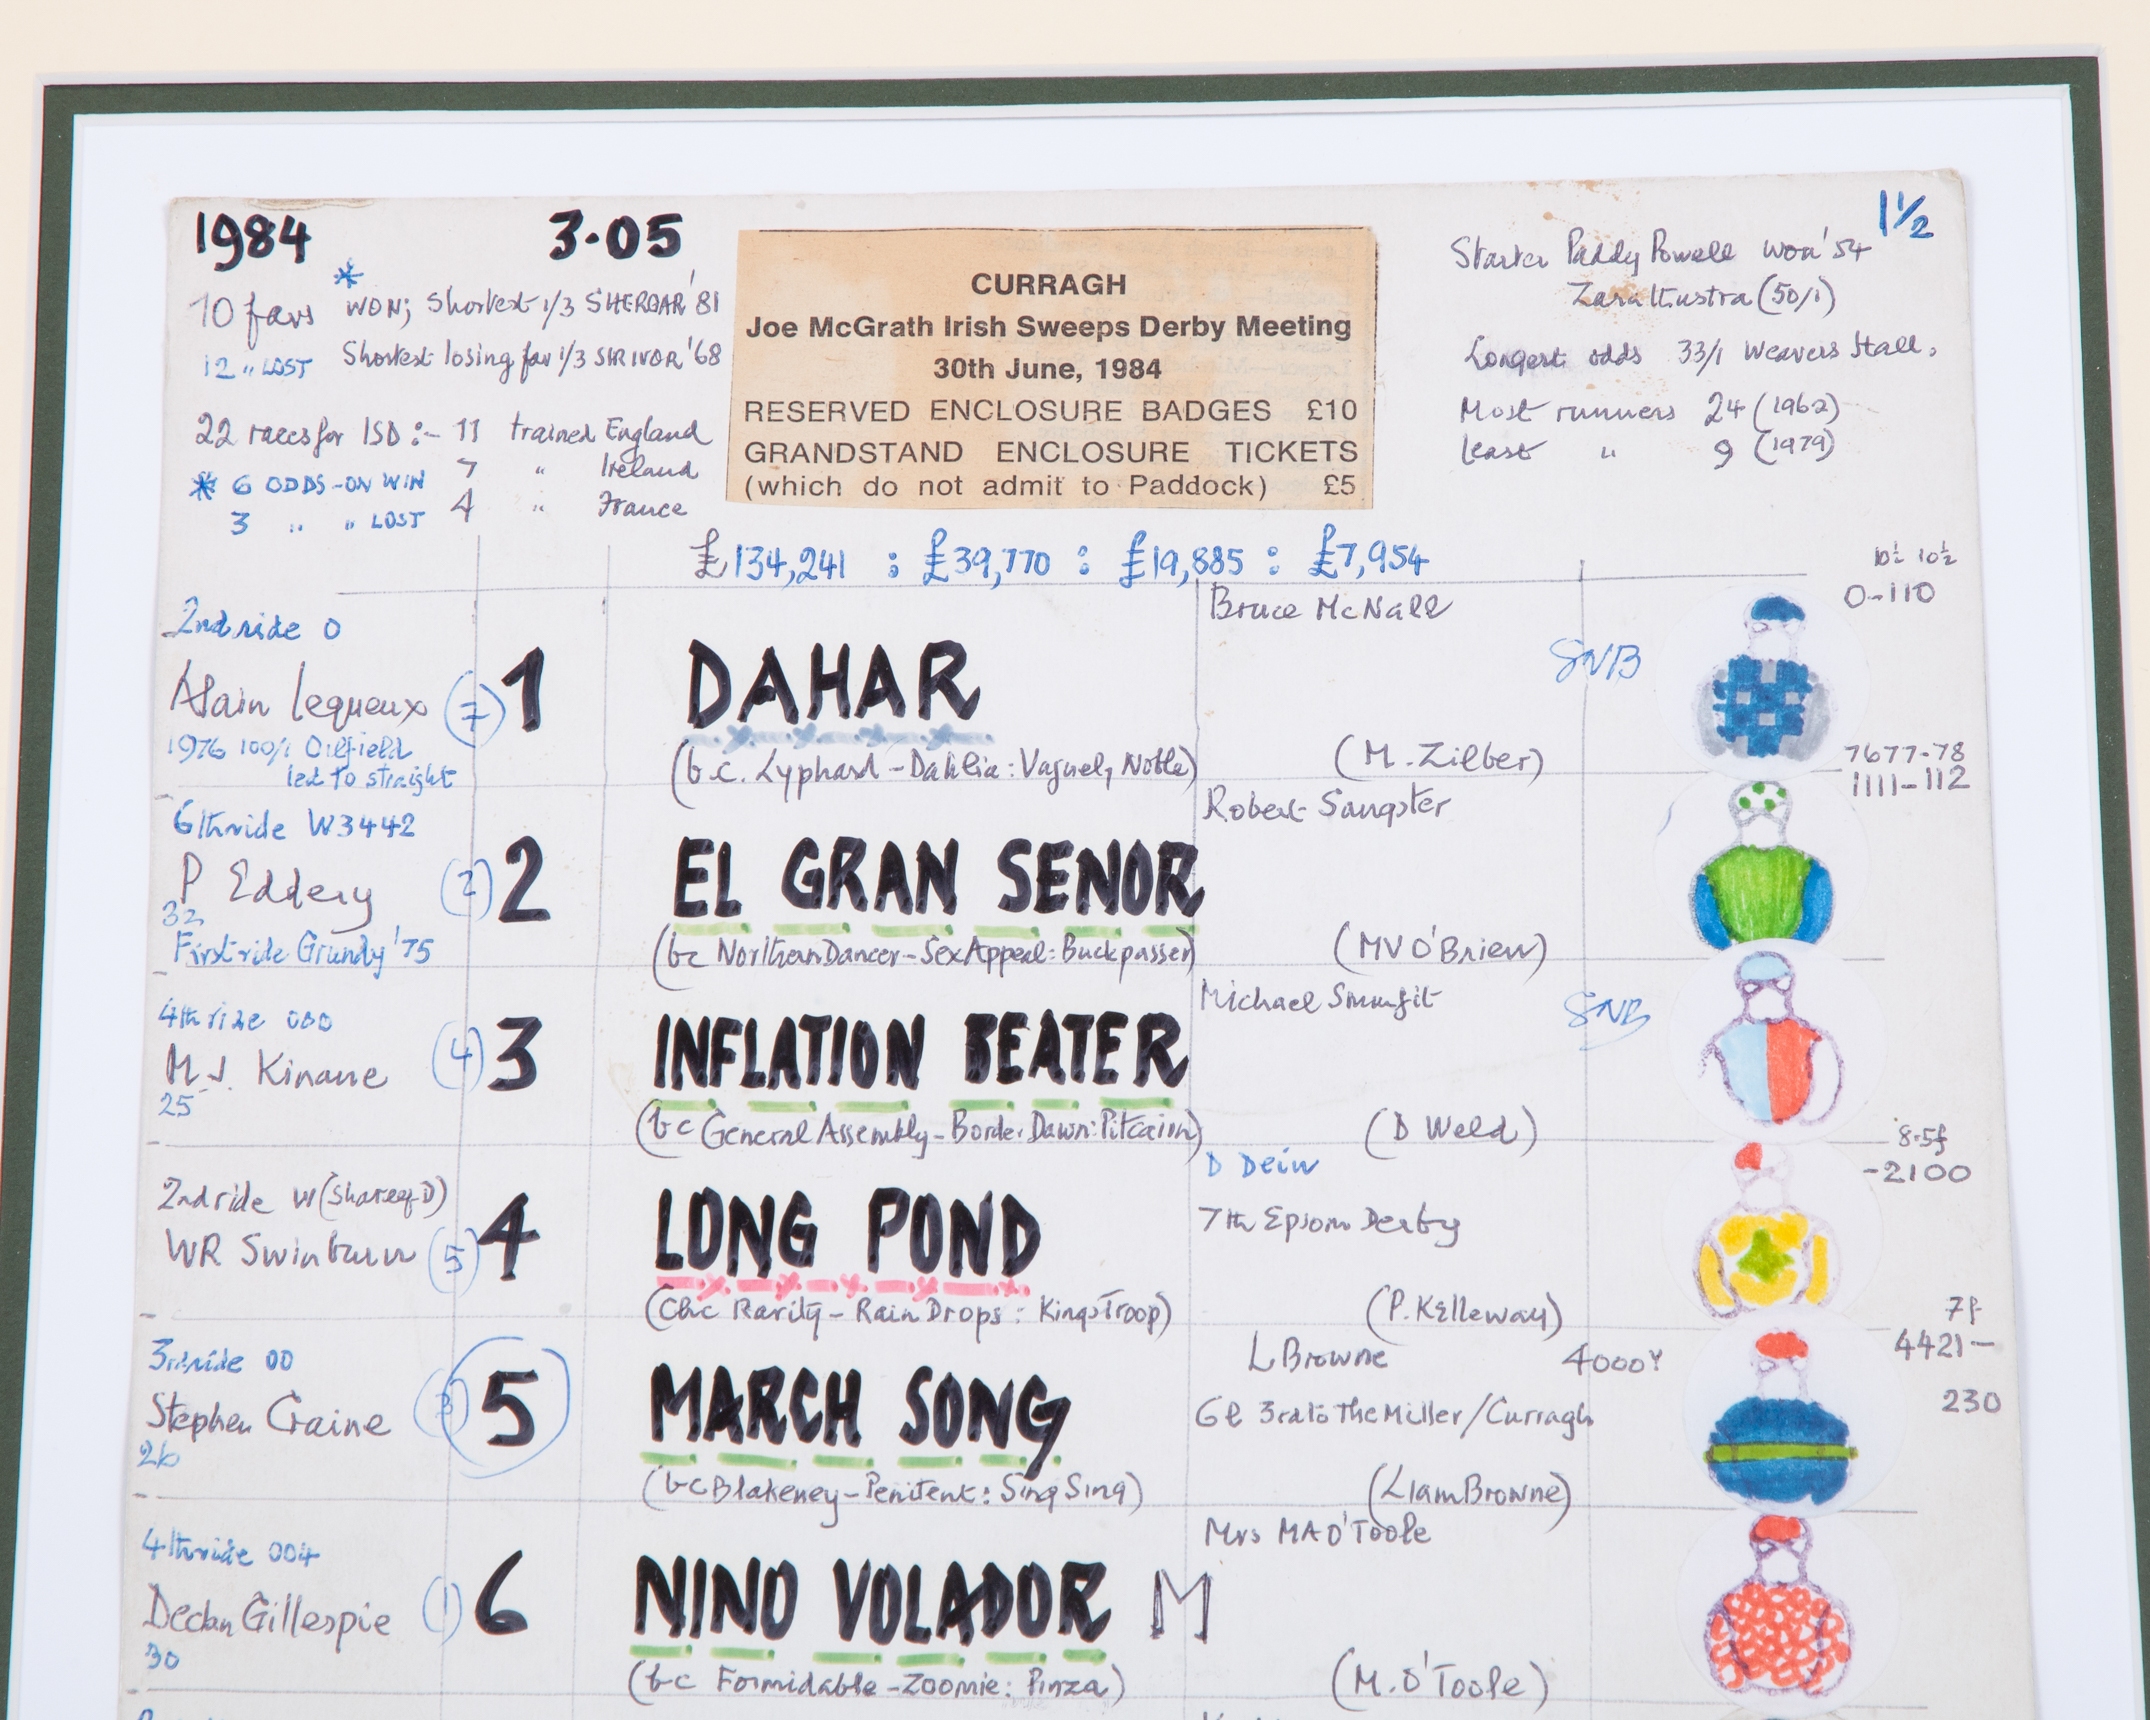 1984 3·05 1½
10 favs * WON; Shortest 1/3 SHERGAR '81
12 " LOST Shortest losing fav 1/3 SIR IVOR '68
22 races for ISD :- 11 trained England
7 " Ireland
4 " France
* 6 ODDS-ON WIN
3 " " LOST
CURRAGH
Joe McGrath Irish Sweeps Derby Meeting
30th June, 1984
RESERVED ENCLOSURE BADGES £10
GRANDSTAND ENCLOSURE TICKETS
(which do not admit to Paddock) £5
Starter Paddy Powell won '54
Zarathustra (50/1)
Longest odds 33/1 Weavers Hall.
Most runners 24 (1962)
least " 9 (1979)
£134,241 : £39,770 : £19,885 : £7,954
10½ 10½
0-110
2nd ride 0
Bruce McNall
Alain Lequeux (7) 1 DAHAR SNB
1976 100/1 Oilfield
led to straight
(b.c. Lyphard - Dahlia: Vaguely Noble) (M. Zilber)
7677-78
1111-112
6th ride W3442
Robert Sangster
P Eddery (2) 2 EL GRAN SENOR
32
First ride Grundy '75
(bc Northern Dancer - Sex Appeal: Buckpasser) (MV O'Brien)
4th ride 000
Michael Smurfit
M J. Kinane (4) 3 INFLATION BEATER SNB
25
(bc General Assembly - Border Dawn: Pitcairn) (D Weld)
8·5f
-2100
D Dein
2nd ride W (Shareef D)
7th Epsom Derby
WR Swinburn (5) 4 LONG POND
(Chc Rarity - Rain Drops: Kings Troop) (P. Kelleway)
7f
4421-
230
3rd ride 00
L Browne 4000Y
Stephen Craine (3) 5 MARCH SONG
26
6l 3rd to The Miller/Curragh
(bc Blakeney - Penitent: Sing Sing) (Liam Browne)
4th ride 004
Mrs MA O'Toole
Declan Gillespie (1) 6 NINO VOLADOR M
30
(bc Formidable - Zoomie: Pinza) (M. O'Toole)